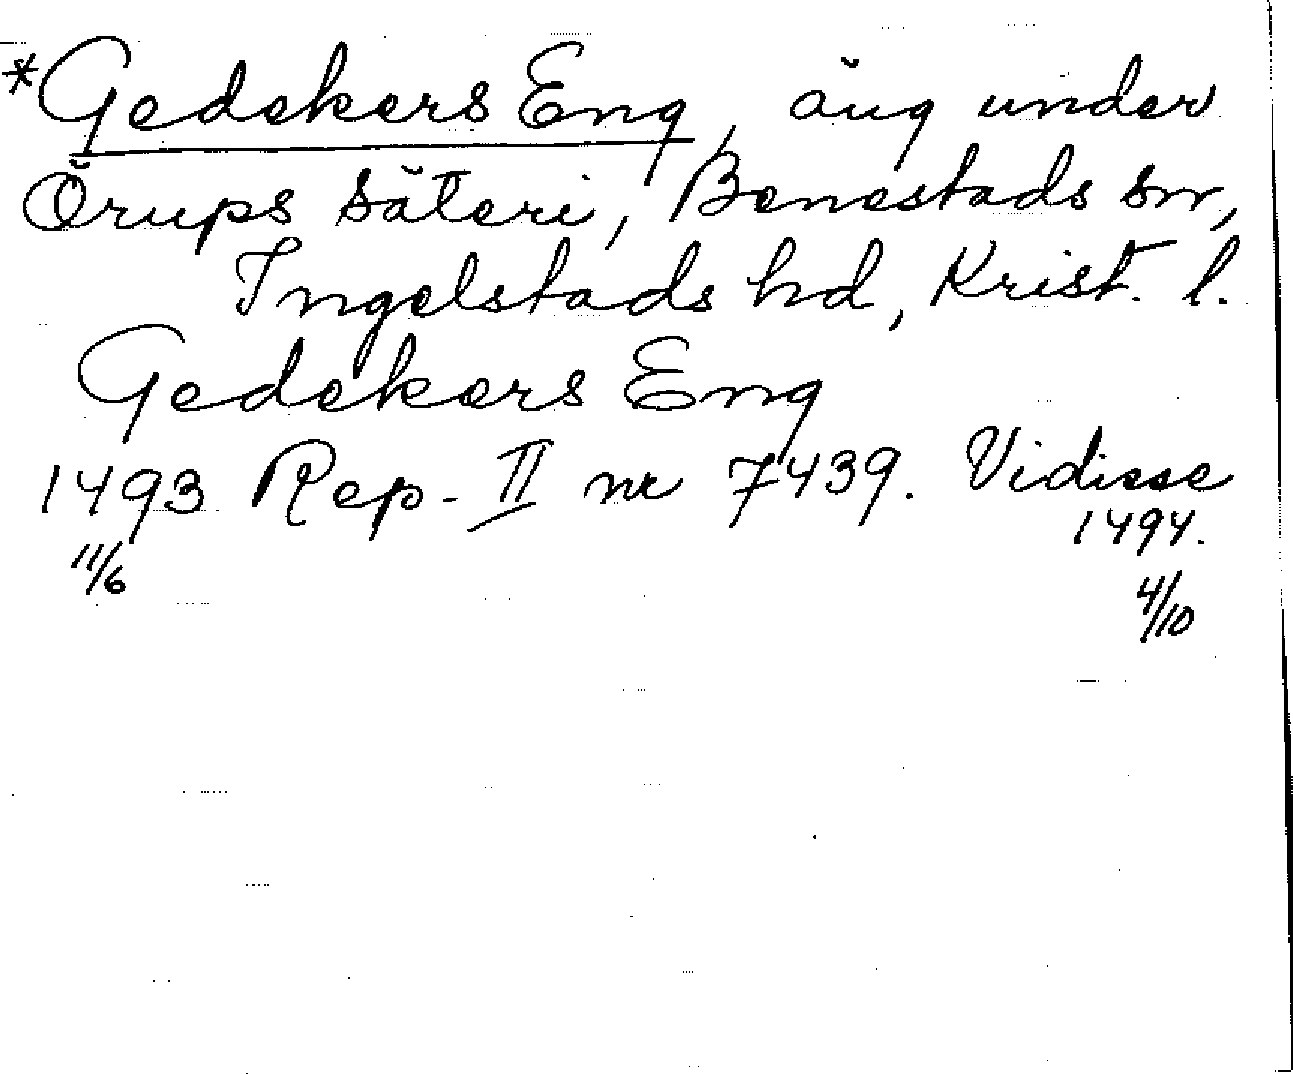 *Gedekers Eng, äng under
Örups säteri, Benestads sn,
Ingelstads hd, Krist. l.
Gedekers Eng
1493 Rep. II nr 7439. Vidisse
1494.
11/6
4/10